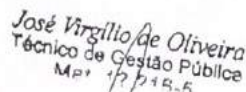 José Virgílio de Oliveira
Técnico de Gestão Pública